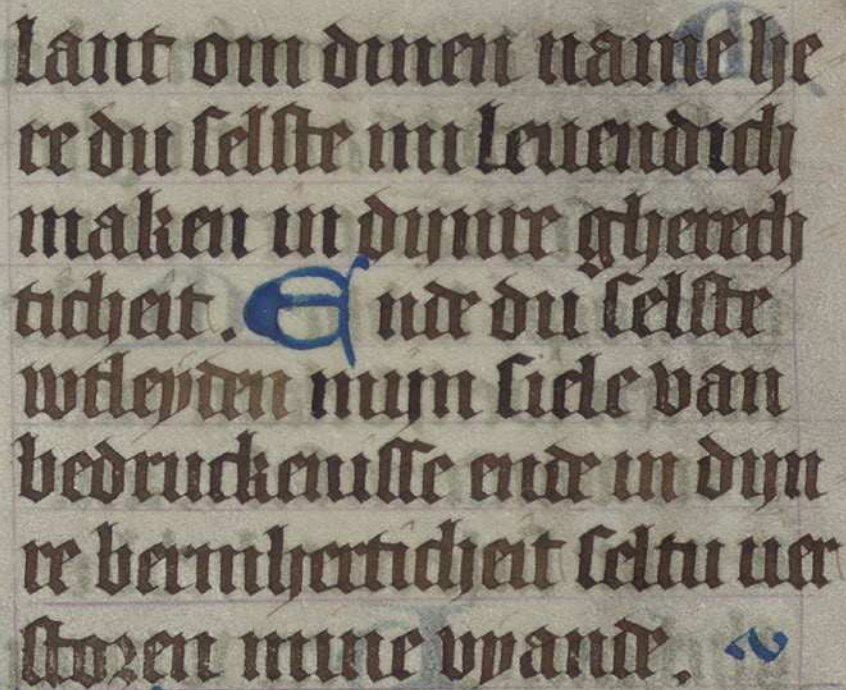 lant om dinen name he
re du selste mi leuendich
maken in dijnre gherech
ticheit. Ende du selste
wtleyden mijn siele van
bedruckenisse ende in dijn
re bermherticheit seltu uer
storen mine vyande.